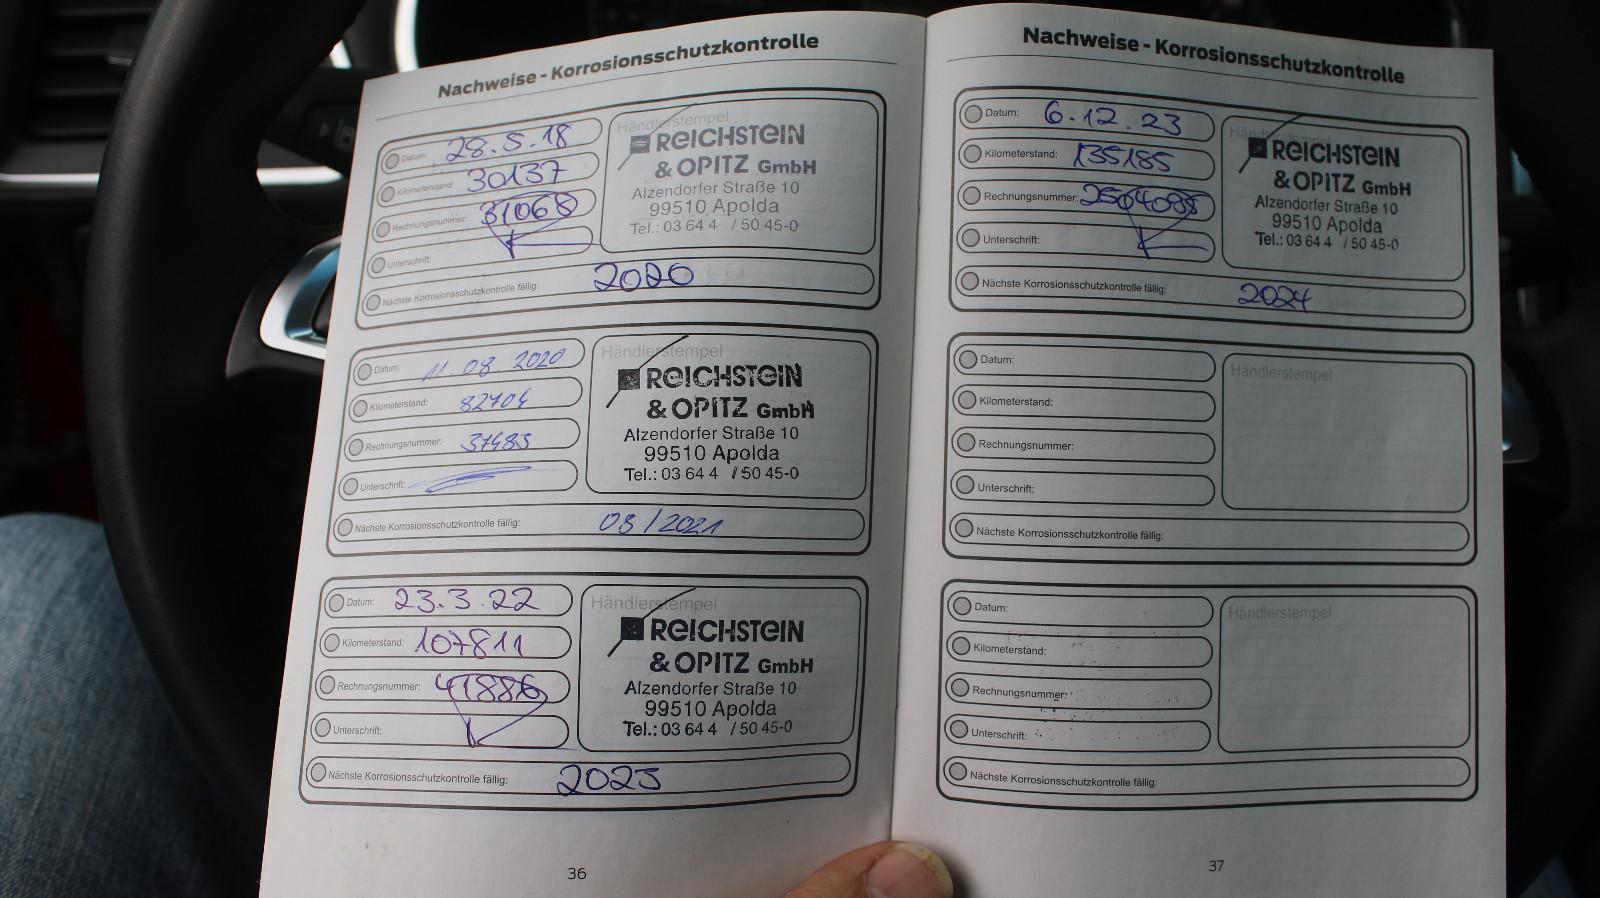 Nachweise - Korrosionsschutzkontrolle
Datum: 28.5.18
Kilometerstand: 30137
Rechnungsnummer: 31068
Unterschrift:
Händlerstempel
REICHSTEIN
& OPITZ GmbH
Alzendorfer Straße 10
99510 Apolda
Tel.: 03 64 4 / 50 45-0
Nächste Korrosionsschutzkontrolle fällig: 2020
Datum: 11.08.2020
Kilometerstand: 82704
Rechnungsnummer: 37483
Unterschrift:
Händlerstempel
REICHSTEIN
& OPITZ GmbH
Alzendorfer Straße 10
99510 Apolda
Tel.: 03 64 4 / 50 45-0
Nächste Korrosionsschutzkontrolle fällig: 08/2021
Datum: 23.3.22
Kilometerstand: 107811
Rechnungsnummer: 41886
Unterschrift:
Händlerstempel
REICHSTEIN
& OPITZ GmbH
Alzendorfer Straße 10
99510 Apolda
Tel.: 03 64 4 / 50 45-0
Nächste Korrosionsschutzkontrolle fällig: 2023
36
Nachweise - Korrosionsschutzkontrolle
Datum: 6.12.23
Kilometerstand: 135185
Rechnungsnummer:
Unterschrift:
Händlerstempel
REICHSTEIN
& OPITZ GmbH
Alzendorfer Straße 10
99510 Apolda
Tel.: 03 64 4 / 50 45-0
Nächste Korrosionsschutzkontrolle fällig: 2024
Datum:
Kilometerstand:
Rechnungsnummer:
Unterschrift:
Händlerstempel
Nächste Korrosionsschutzkontrolle fällig:
Datum:
Kilometerstand:
Rechnungsnummer:
Unterschrift:
Händlerstempel
Nächste Korrosionsschutzkontrolle fällig:
37